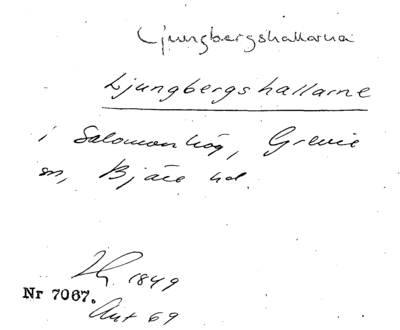 Ljungbergshallarna
Ljungbergshallarne
i Salomonhög, Grevie
sn, Bjäre hd.
1849
Nr 7067.
Avt 69